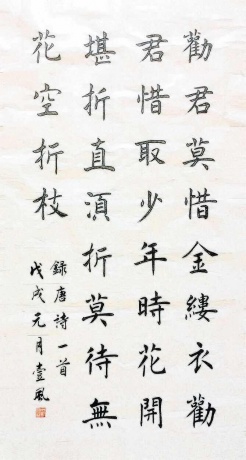 勸君莫惜金縷衣勸
君惜取少年時花開
堪折直須折莫待無
花空折枝
錄唐詩一首
戊戌元月壹風